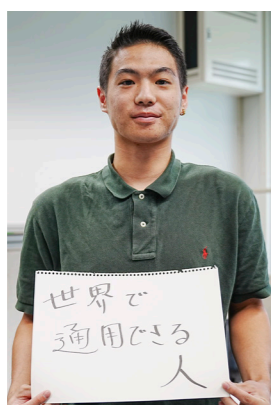 世界で
通用できる
人